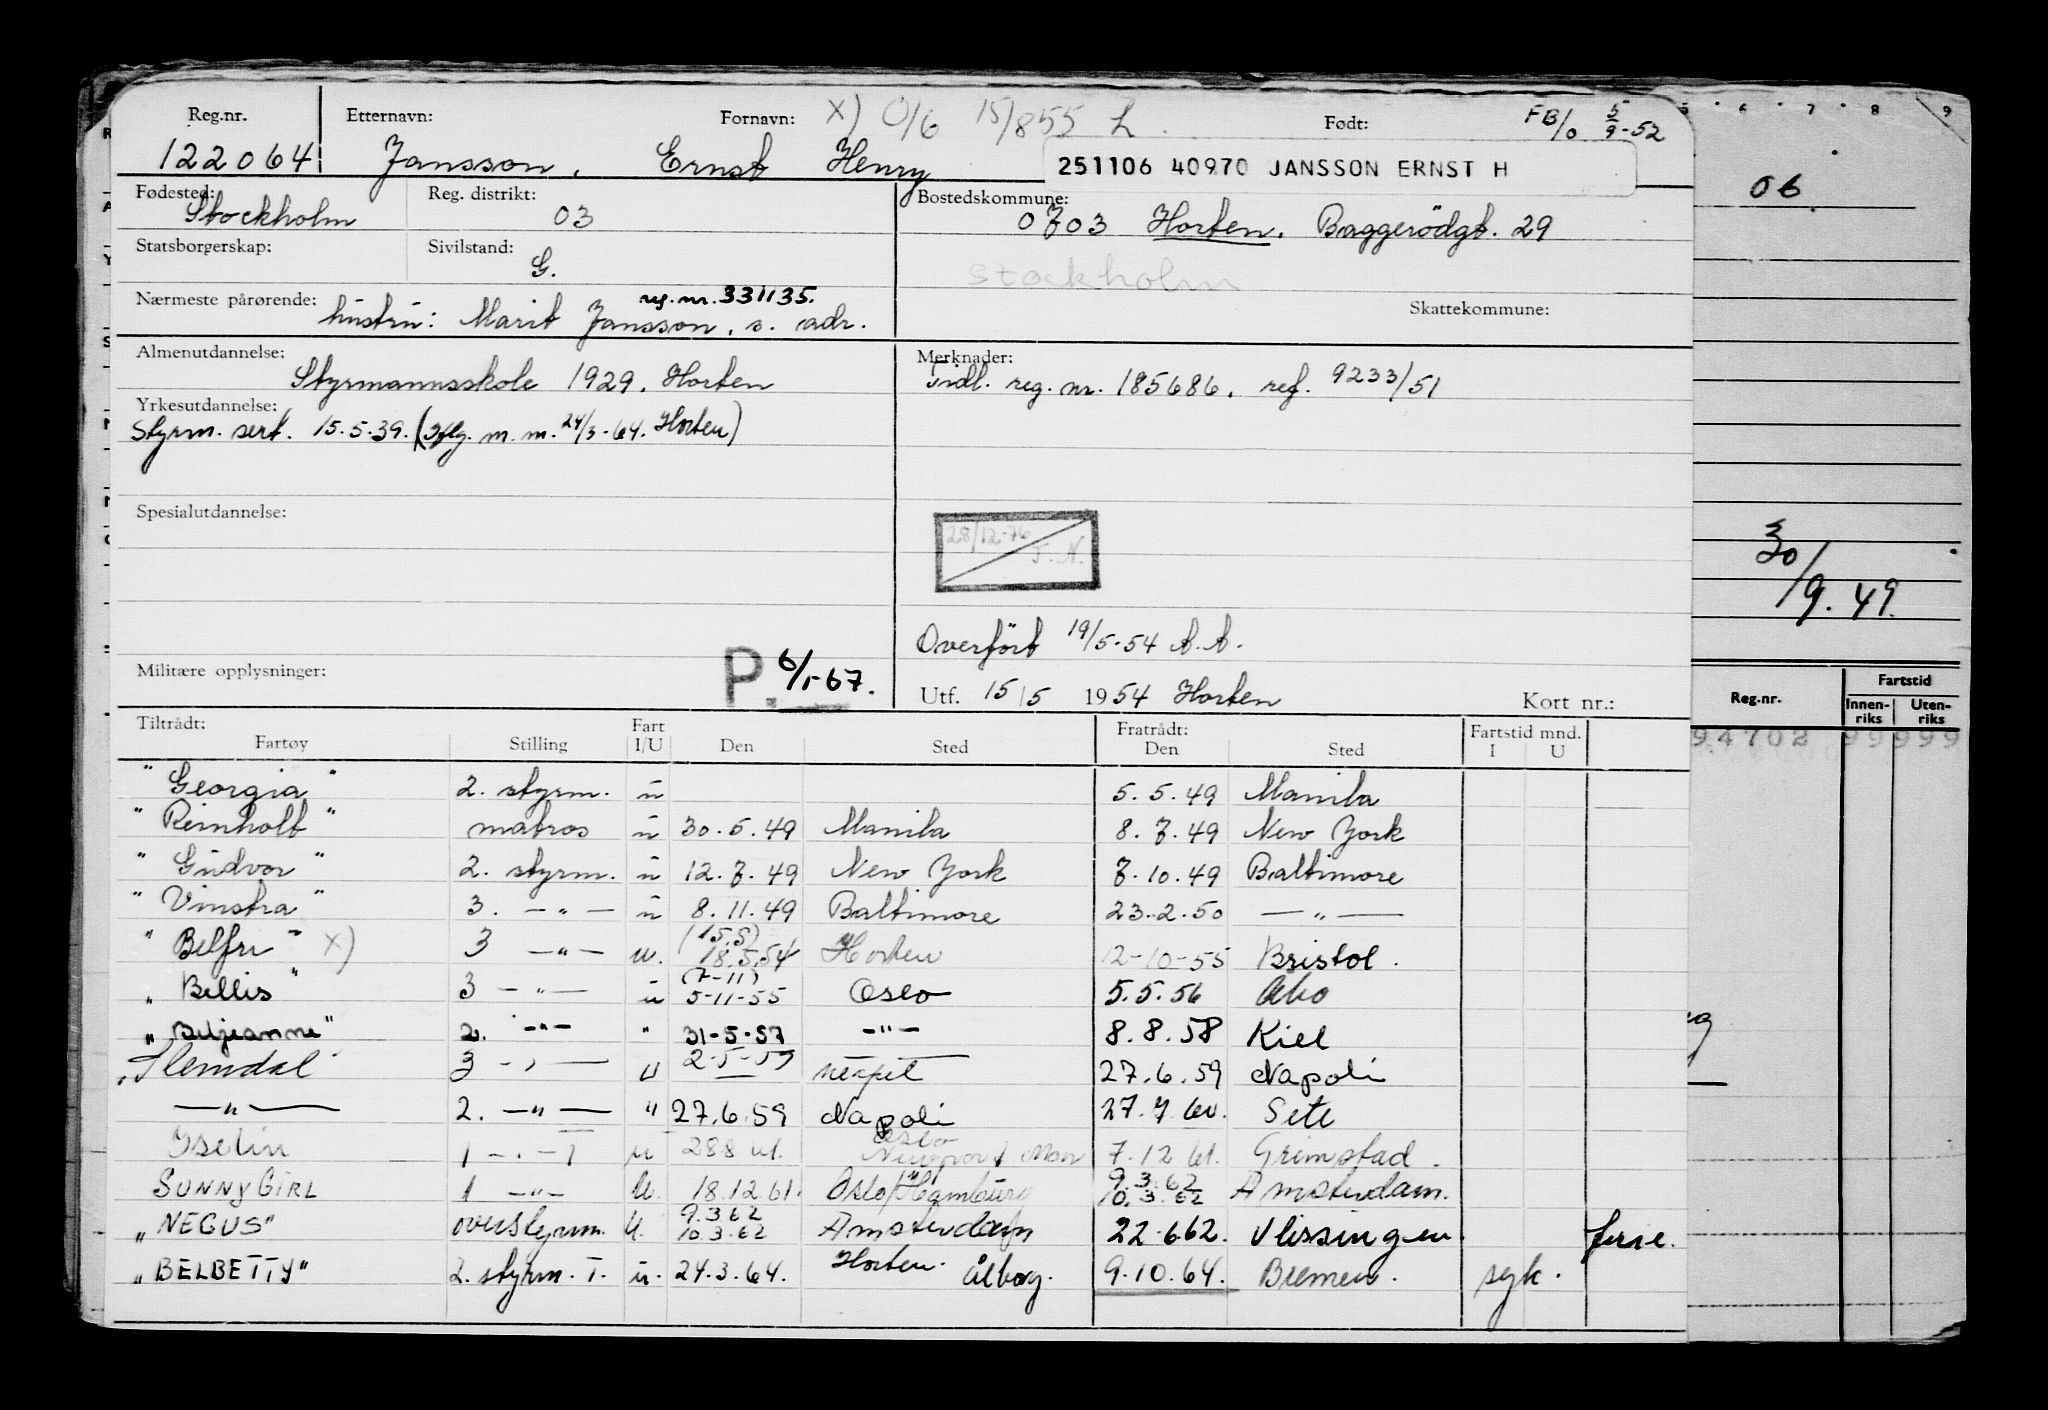 Reg.nr. Etternavn: Fornavn: x) O/6 15/855 L. Født: FB/o 5/9-52
122064 Jansson, Ernst Henry 251106 40970 JANSSON ERNST H
Fødested: Reg. distrikt: Bostedskommune:
Stockholm 03 0703 Horten. Baggerødgt. 29
Statsborgerskap: Sivilstand: Stockholm
G.
Nærmeste pårørende: reg. nr. 331135. Skattekommune:
hustru: Marit Jansson, s. adr.
Almenutdannelse: Merknader:
Styrmannsskole 1929, Horten Tidl. reg. nr. 185686, ref. 9233/51
Yrkesutdannelse:
Styrm. sert. 15.5.39. ( m. m. 24/3-64. Horten)
Spesialutdannelse: 28/12-76 T.N.
Overført 19/5-54 A.A.
Militære opplysninger: P. 6/1-67. Utf. 15/5 1954 Horten Kort nr.:
Tiltrådt: Fart Fratrådt: Fartstid mnd.
Fartøy Stilling I/U Den Sted Den Sted I U
"Georgia" 2. styrm. u 5.5.49 Manila
"Reinholt" matros u 30.5.49 Manila 8.7.49 New York
"Gudvor" 2. styrm. u 12.7.49 New York 7.10.49 Baltimore
"Vinstra" 3. -"- u 8.11.49 Baltimore 23.2.50 -"-
"Belfri" x) 3 -"- u. (15.5) 18.5.54 Horten 12-10-55 Bristol.
"Bellis" 3 -"- u (7-11) 5-11-55 Oslo 5.5.56 Åbo
"Beljeanne" 2. -"- " 31-5-57 -"- 8.8.58 Kiel
"Slemdal" 3 -"- U 2-5-59 27.6.59 Napoli
-"- 2. -"- " 27.6.59 Napoli 27.7.60. Sete
Iselin 1 -"- u 28.8.61. Oslo Newport Mon 7.12.61. Grimstad.
SUNNY GIRL 1 -"- U. 18.12.61. Oslo/Hamburg 9.3.62 10.3.62 Amsterdam.
"NEGUS" overstyrm. U. 9.3.62 10.3.62 Amsterdam 22.6.62. Vlissingen. ferie.
"BELBETTY" 2. styrm. T. u. 24.3.64. Horten. Ålborg. 9.10.64. Bremen. syk.
5 6 7 8 9
06.
30/9.49.
Reg.nr. Fartstid
Innenriks Utenriks
94702 99999